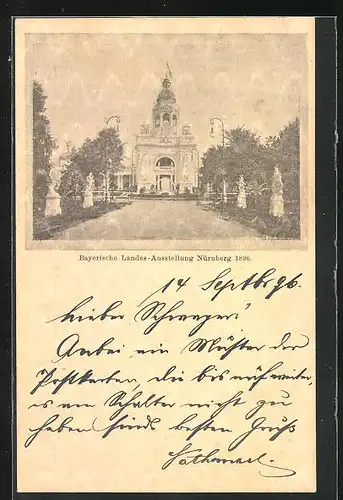 Bayerische Landes-Ausstellung Nürnberg 1896.
14 Septbr 96.
Lieber Schwager!
Anbei ein Muster der
Postkarten, die bis auf weiter,
es am Schalter nicht zu
haben sind. besten Gruß
Nathanael.